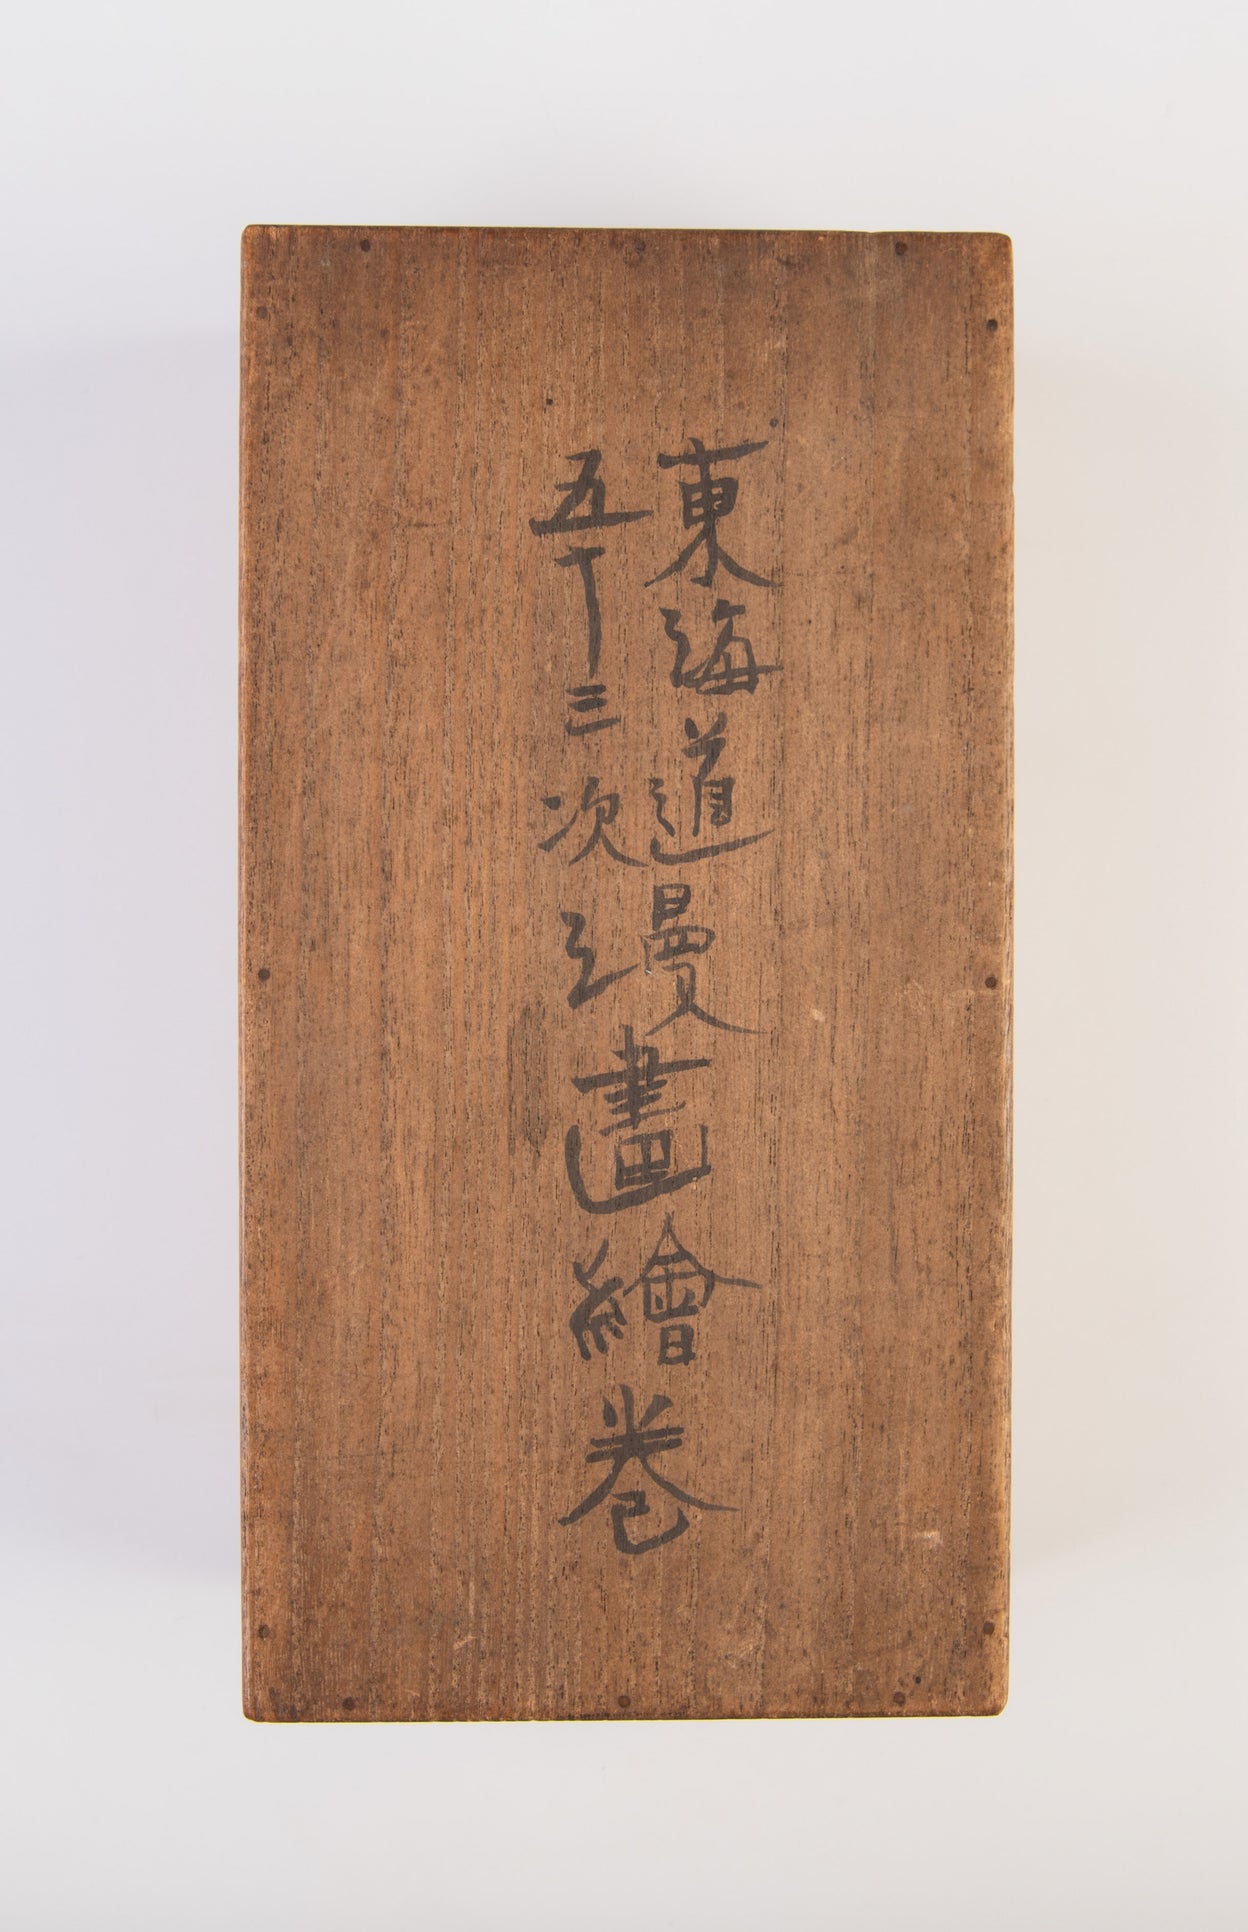 東海道
五十三次
漫畫繪巻